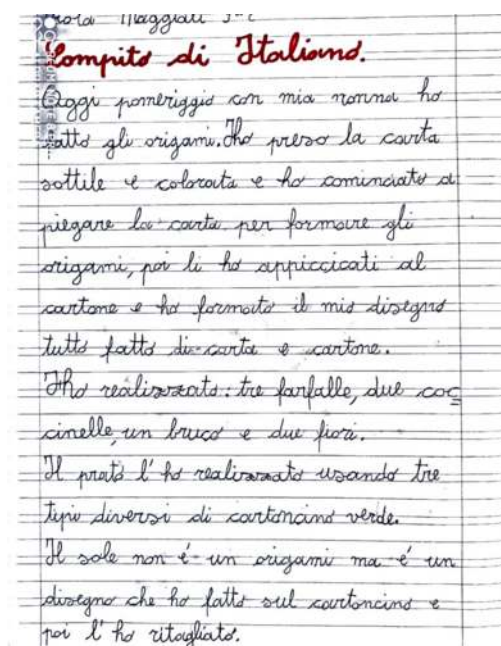 Maggiali
Compito di Italiano.
Oggi pomeriggio con mia nonna ho
fatto gli origami. Ho preso la carta
sottile e colorata e ho cominciato a
piegare la carta per formare gli
origami, poi li ho appiccicati al
cartone e ho formato il mio disegno
tutto fatto di carta e cartone.
Ho realizzato: tre farfalle, due coc=
cinelle, un bruco e due fiori.
Il prato l'ho realizzato usando tre
tipi diversi di cartoncino verde.
Il sole non é un origami ma é un
disegno che ho fatto sul cartoncino e
poi l'ho ritagliato.